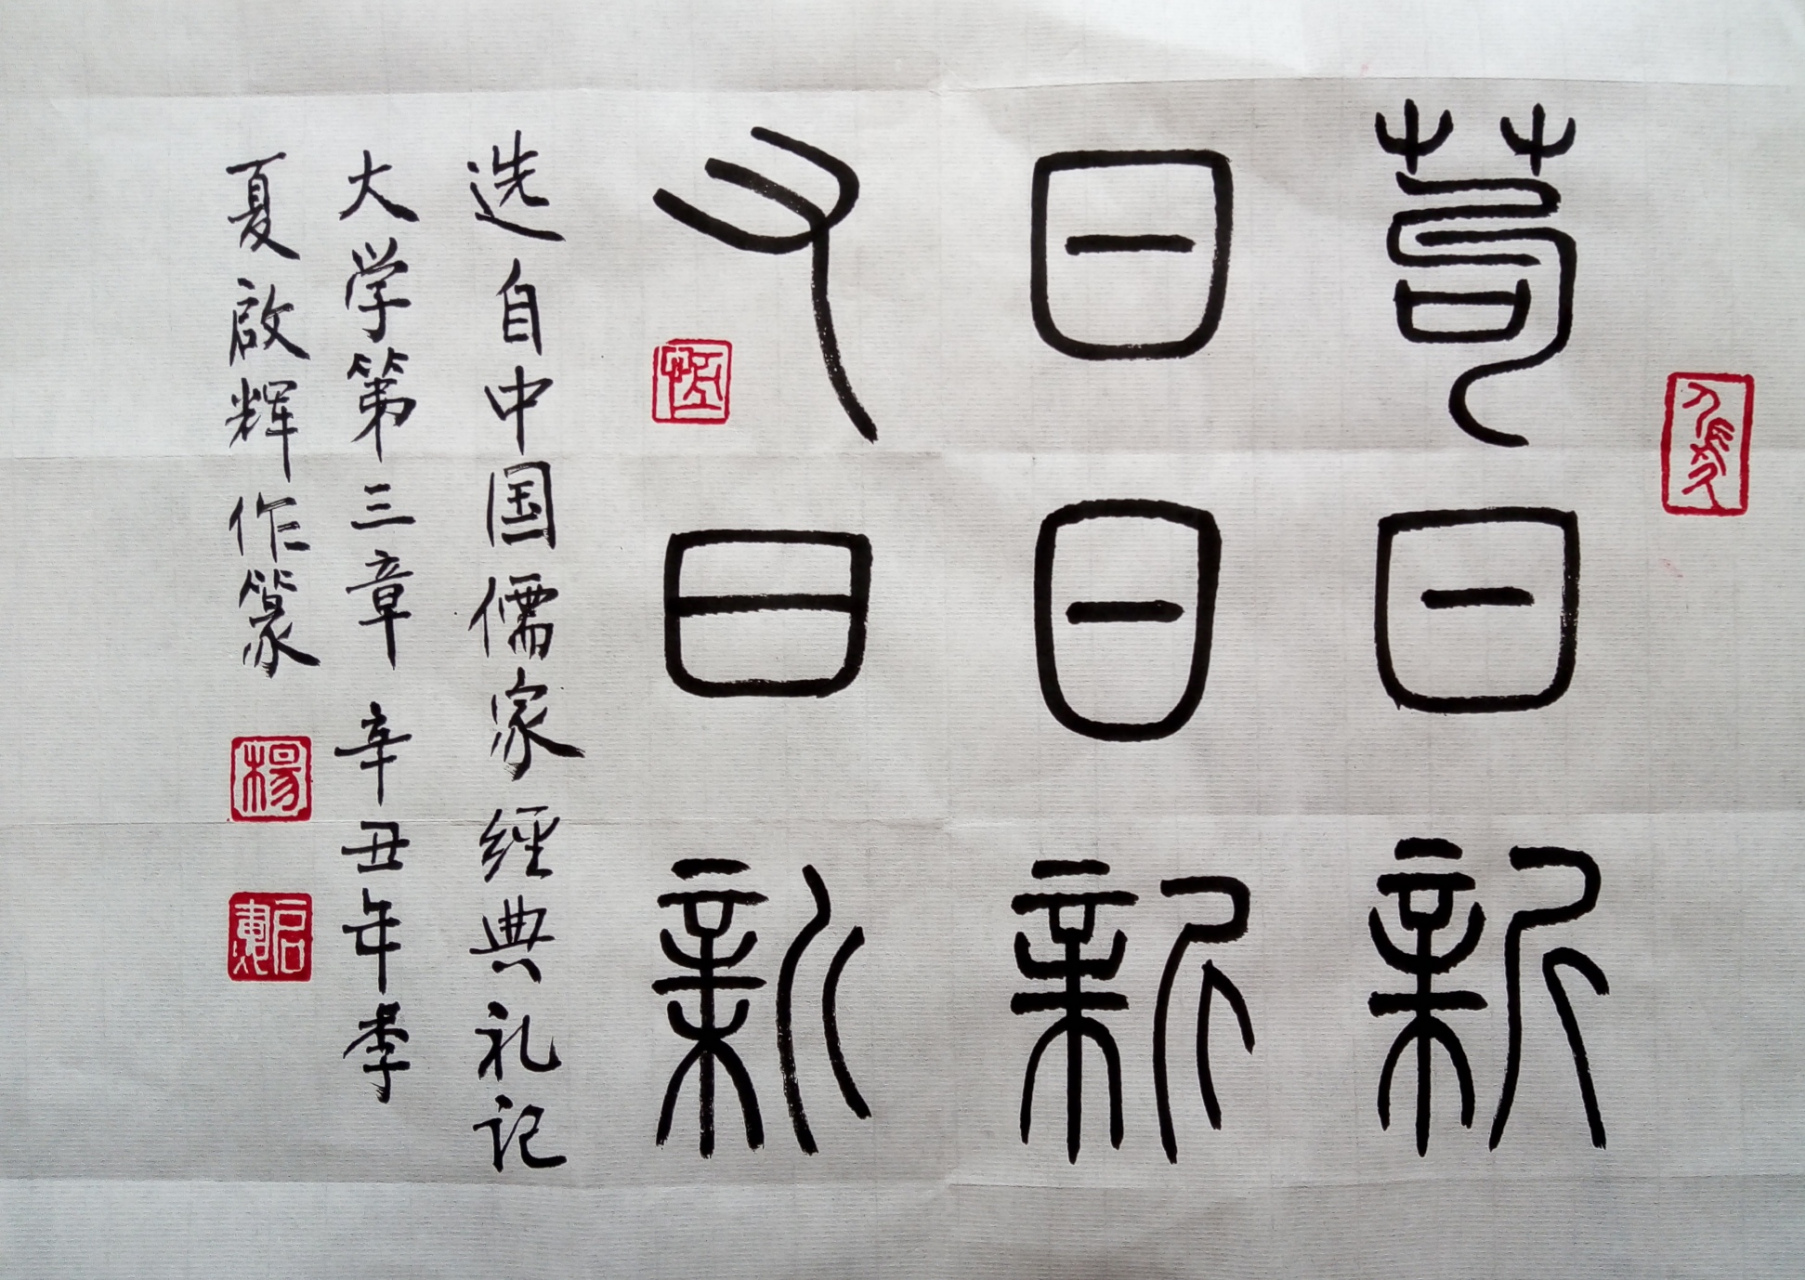 苟日新
日日新
又日新
选自中国儒家经典礼记
大学第三章 辛丑年季
夏啟辉作篆
楊